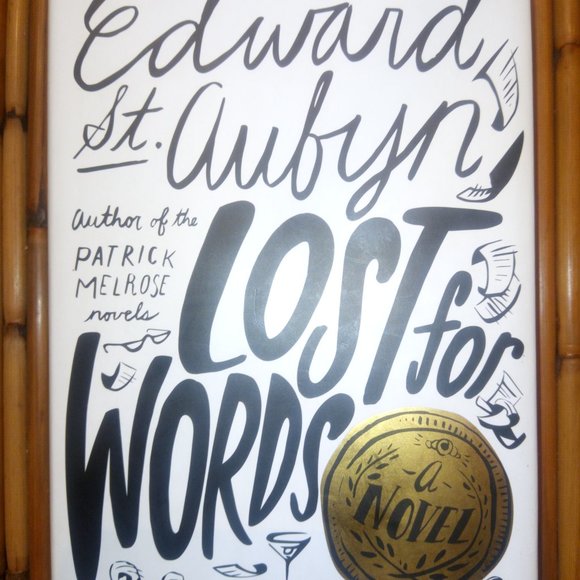 Edward
St. Aubyn
author of the
PATRICK
MELROSE
novels
LOST for
WORDS
a
NOVEL